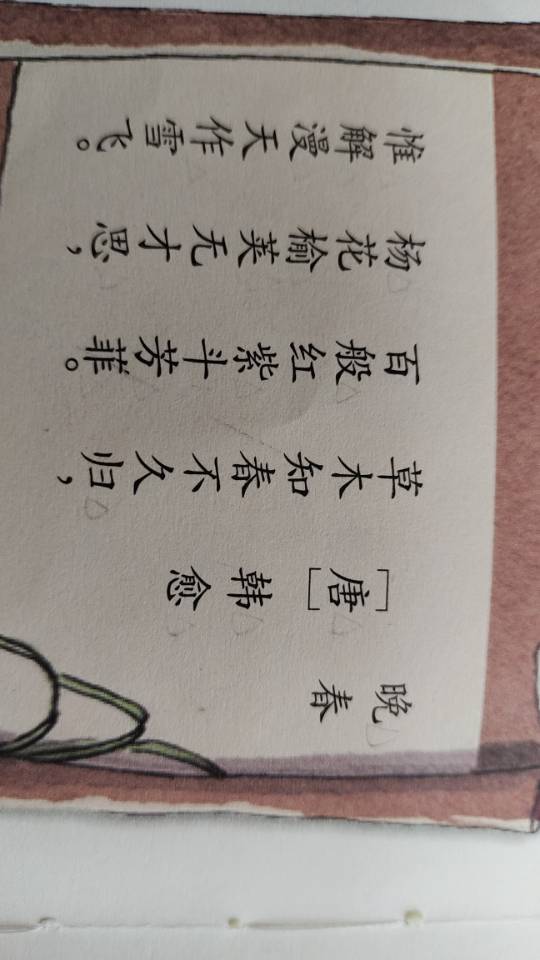 晚春
[唐]韩愈
草木知春不久归，
百般红紫斗芳菲。
杨花榆荚无才思，
惟解漫天作雪飞。